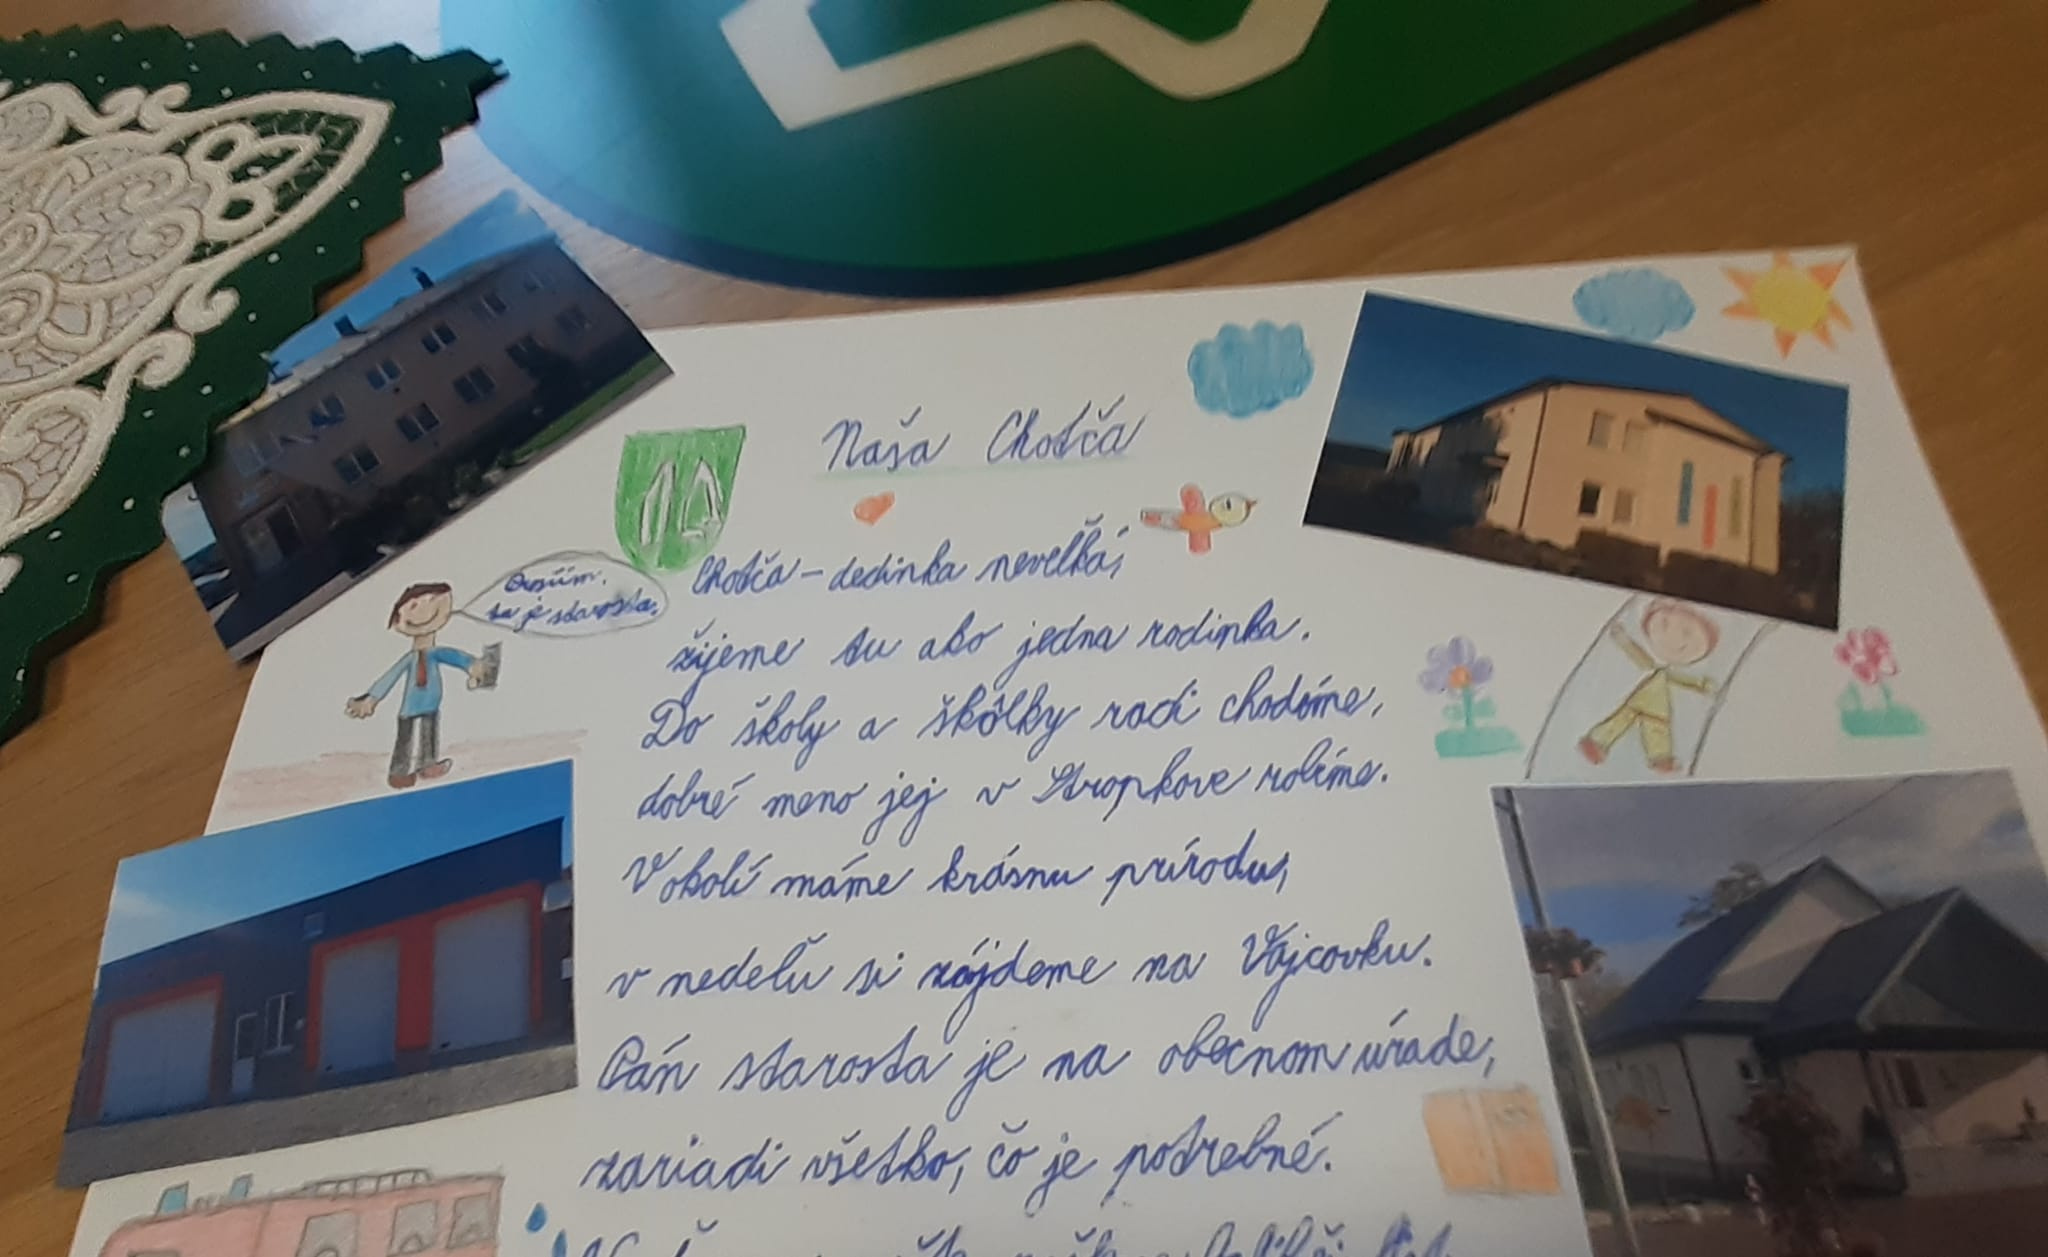 Naša Chotča
Prosím,
tu je starosta.
Chotča - dedinka neveľká,
žijeme tu ako jedna rodinka.
Do školy a škôlky radi chodíme,
dobré meno jej v Stropkove robíme.
V okolí máme krásnu prírodu,
v nedeľu si zájdeme na Vájcovku.
Pán starosta je na obecnom úrade,
zariadi všetko, čo je potrebné.